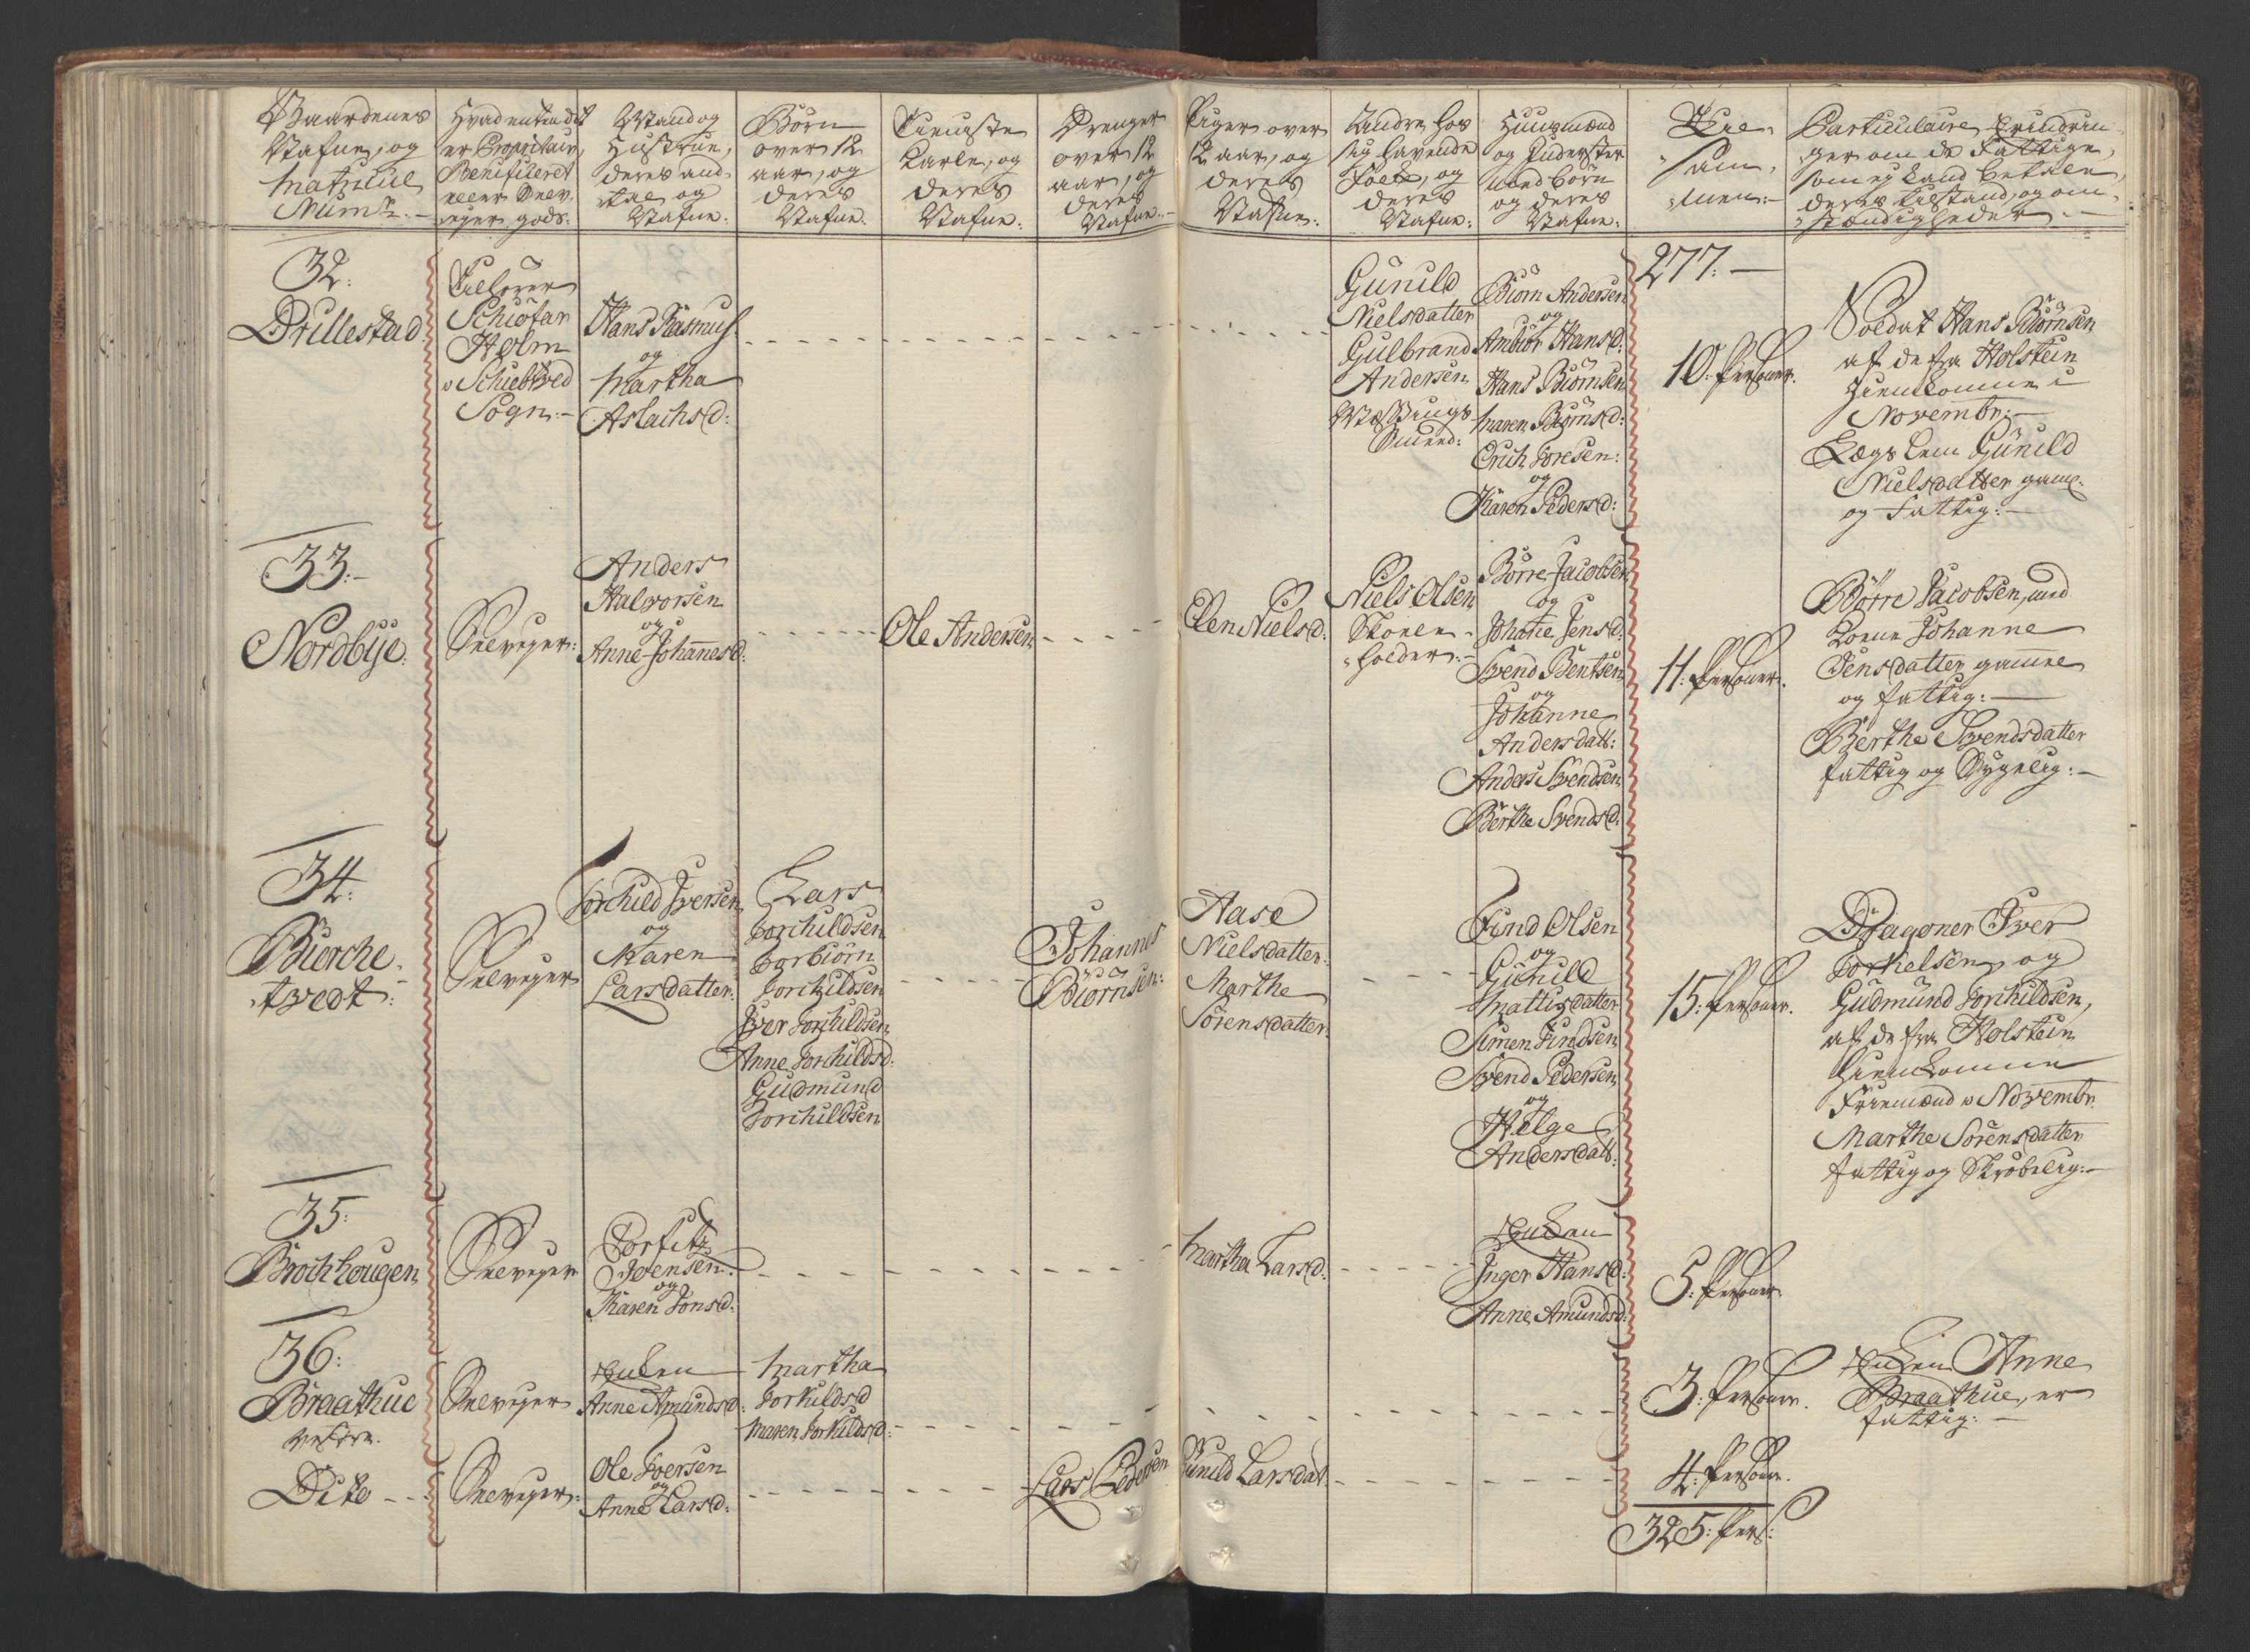 Gaardenes
Nafne, og
Matricul
Num:
Hvad entendt
er Propritair,
Benificeret
eller Selv-
ejer gods.
Mand og
Hustrue,
deres and-
tal og
Nafne:
Børn
over 12
aar, og
deres
Nafne.
Tieniste
Karle, og
deres
Nafne:
Drenger
over 12
aar, og
deres
Nafne.
Piger over
12 aar, og
deres
Nafne:
Andre hos
sig havende
Folk, og
deres
Nafne:
Huusmænd
og Inderster
med børn
og deres
Nafne:
Sum-
Particulaire Erindrin-
ger om de Fattige,
som ej kand betale,
deres tilstand, og om-
stændigheder.
32.
Drillestad
Holm
Schiebtved
Sogn.
Hans Rasmuss
og
Martha
Aslachsd:
Gunild
Nielsdatter
Gulbrand
Andersen
Biørn Andersen
og
Ambiør Hansd:
Hans Biørnsen
Maren Biørnsd:
Erich Joresen:
og
Karen Pedersd:
277.
10. Personer.
Soldat Hans Biørnsen
af de fra Holstein
hiemkomne i
Novembr:
Lægs Lem Gunild
Nielsdatter gaml.
og Fattig:
33.
Nordbye.
Selvejer:
Anders
Halvorsen
og
Anne Johannesd:
Ole Andersen
Elen Nielsd:
Niels Olsen
Skole-
holder.
Børre Jacobsen
og
Johane Jensd:
Svend Bentsen
og
Johanne
Andersdatt:
Anders Svendsen
Berthe Svendsd:
11. Personer.
Børre Jacobsen, med
Kone Johanne
Jensdatter gamle
og fattig:
Berthe Svendsdatter
fattig og Sygelig:
34.
Bierche-
tvedt:
Selvejer
Torchild Iversen
og
Maren
Larsdatter
Lars
Torchildsen
Torbiørn
Torchildsen
Iver Torchildsen
Anne Torchildsd:
Gudmund
Torchildsen
Johannes
Biørnsen:
Aase
Nielsdatter
Marthe
Sørensdatter
Find Olsen
og
Gunild
Mattisdatter
Simen Findsen
Svend Pedersen
og
Helge
Andersdatt:
15. Personer.
Dragoner Iver
Torkelsen, og
Gudmund Torchildsen,
af de fra Holstein
hiemkomne
Friemænd i Novembr.
Marthe Sørensdatter
fattig og Skrøbelig:
35.
Brochhougen
Selvejer
Torfin
Joensen
og
Karen Jonsd:
Martha Larsd:
Enken
Inger Hansd:
Anne Amundsd:
5. Personer
36.
Braathue
vestre.
Selvejer
Enken
Anne Amundsd:
Martha
Torkildsd
Maren Torkildsd:
3. Personer.
Enken Anne
Braathue, er
fattig:
Dito
Selvejer:
Ole Iversen
og
Anne Larsd:
Lars Pedersen
Gunild Larsdat
4. Personer.
325. Pers: